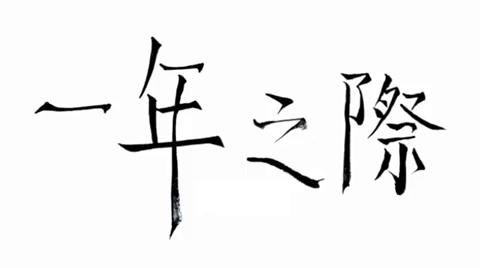 一年之際